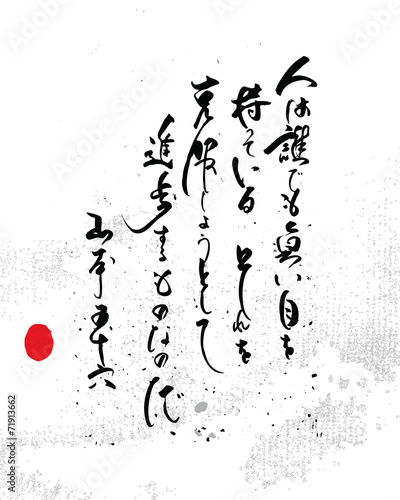 人は誰でも負い目を
持っている それを
克服しようとして
進歩するものなのだ、
山本五十六
Adobe Stock | #71913662